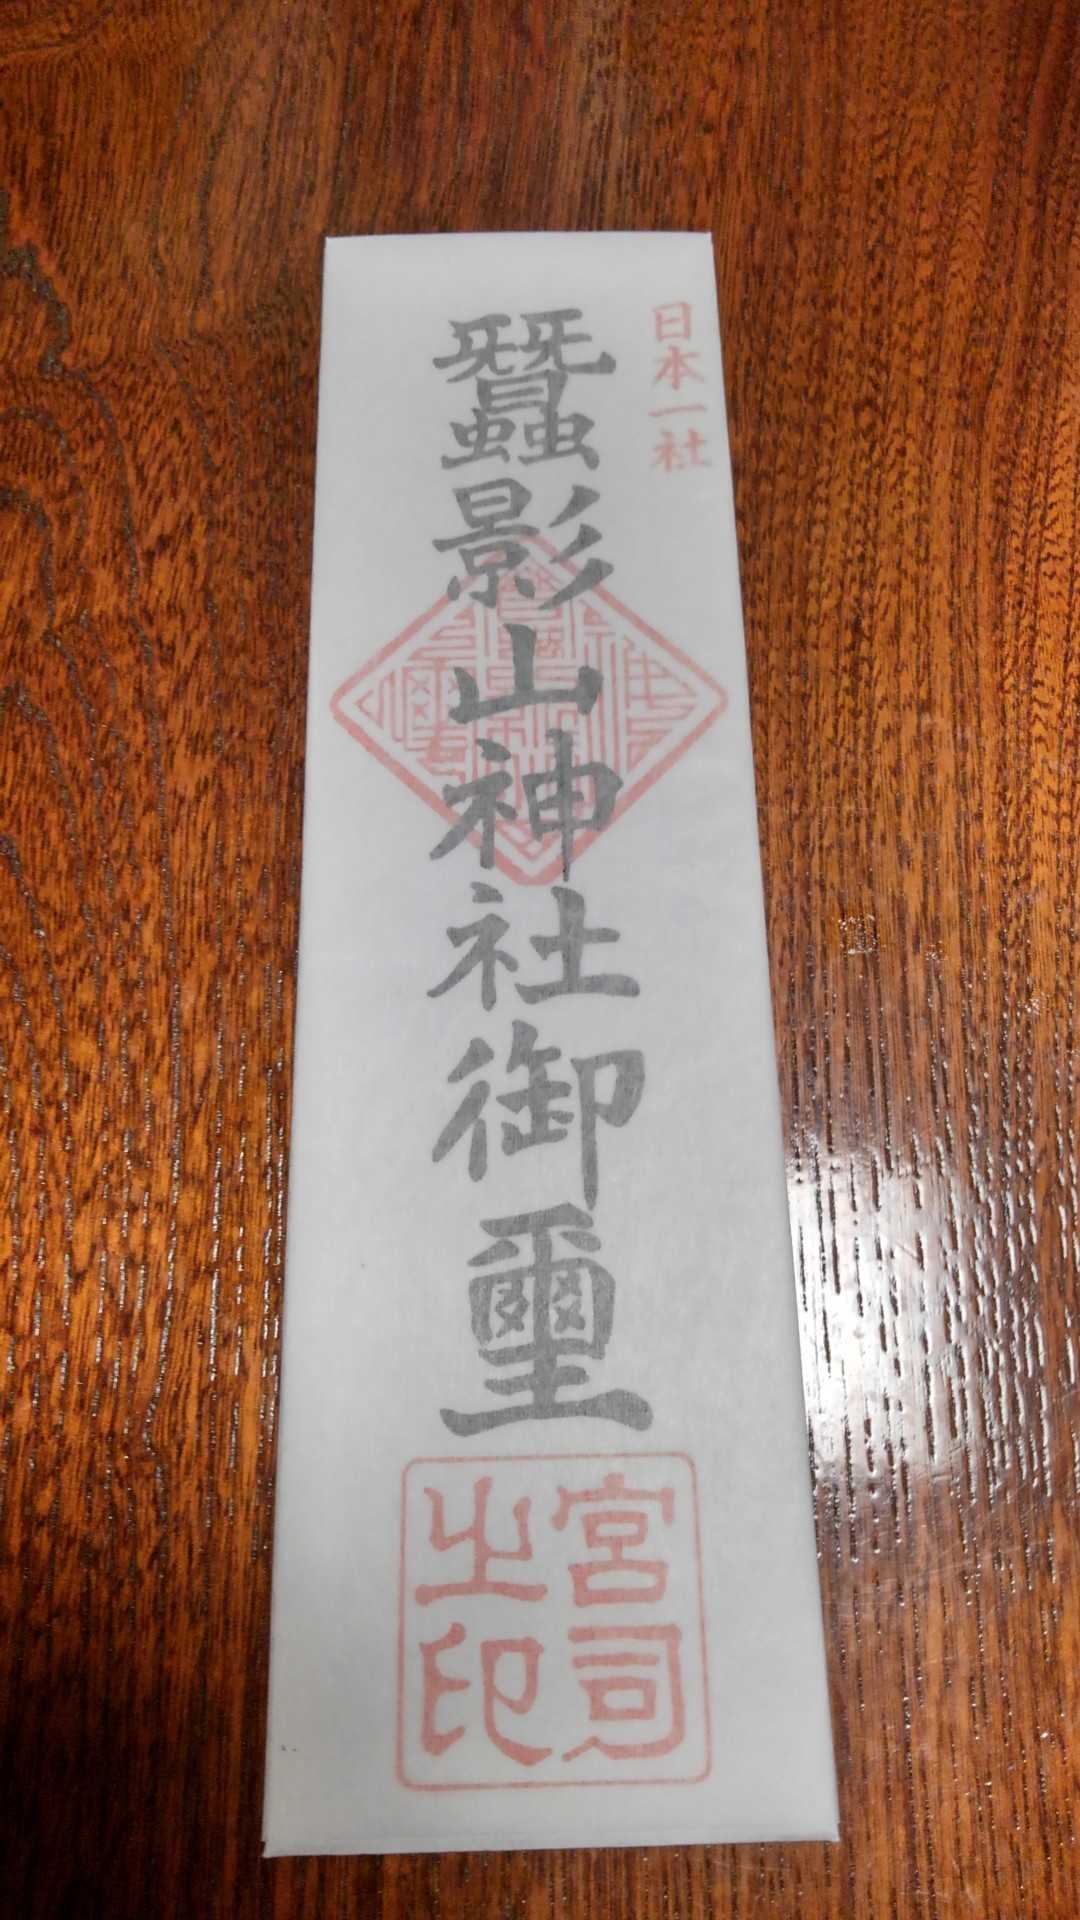 日本一社
蠶影山神社御璽
宮司
之印